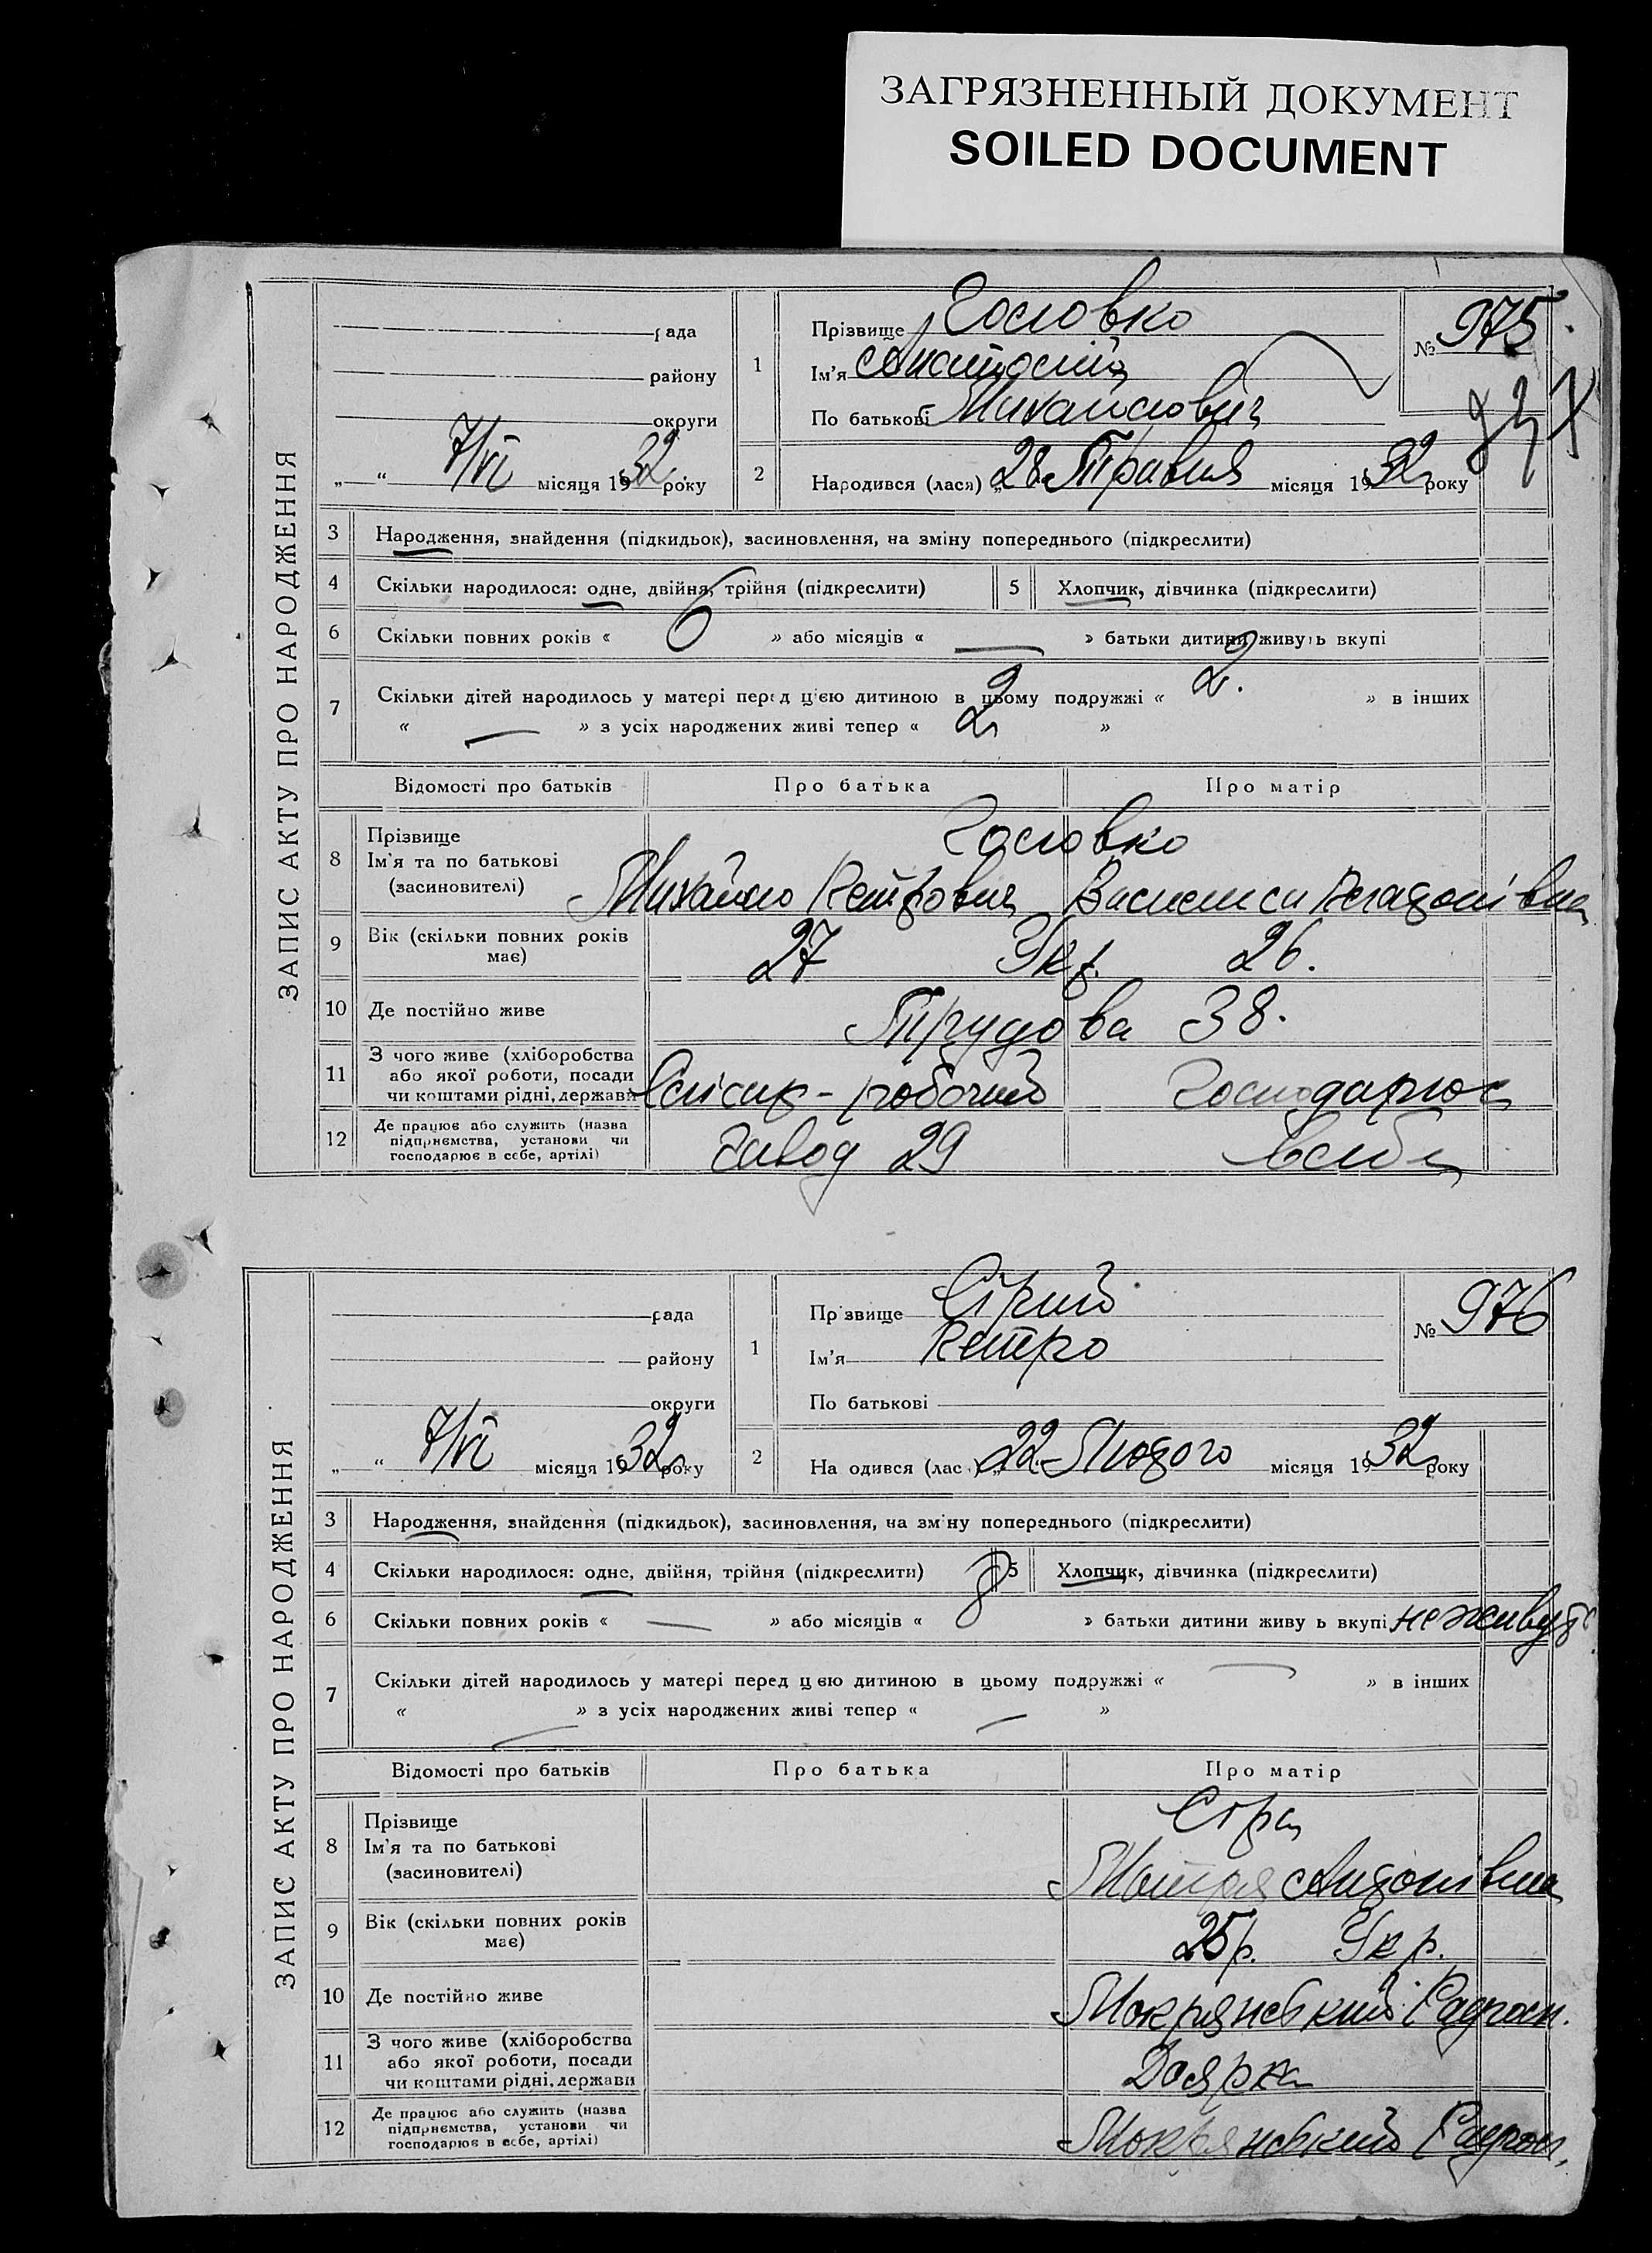 ЗАГРЯЗНЕННЫЙ ДОКУМЕНТ
SOILED DOCUMENT
ЗАПИС АКТУ ПРО НАРОДЖЕННЯ
рада
району
округи
„ “ 7/VI місяця 1932 року
1
Прізвище Головко
Ім’я Анатолій
По батькові Михайлович
№ 975
2
Народився (лася) „28 Травня місяця 1932 року
3
Народження, знайдення (підкидьок), засиновлення, на зміну попереднього (підкреслити)
4
Скільки народилося: одне, двійня, трійня (підкреслити)
5
Хлопчик, дівчинка (підкреслити)
6
Скільки повних років « 6 » або місяців « — » батьки дитини живуть вкупі
7
Скільки дітей народилось у матері перед цією дитиною в цьому подружжі « 2. » в інших
« — » з усіх народжених живі тепер « 2 »
Відомості про батьків
Про батька
Про матір
8
Прізвище
Ім’я та по батькові
(засиновителі)
Головко
Михайло Петрович
Василиса
9
Вік (скільки повних років
має)
27 Укр. 26.
10
Де постійно живе
Трудова 38.
11
З чого живе (хліборобства
або якої роботи, посади
чи коштами рідні, держави
Слісар - робочий
Господарює
12
Де працює або служить (назва
підприємства, установи чи
господарює в себе, артілі)
Завод 29
в себе
ЗАПИС АКТУ ПРО НАРОДЖЕННЯ
рада
району
округи
„ “ 7/VI місяця 1932 року
1
Пр звище Сірий
Ім’я Петро
По батькові
№ 976
2
На одився (лас ) „22 Лютого місяця 1932 року
3
Народження, знайдення (підкидьок), засиновлення, на зм ну попереднього (підкреслити)
4
Скільки народилося: одне, двійня, трійня (підкреслити)
5
Хлопчик, дівчинка (підкреслити)
6
Скільки повних років « — » або місяців « 8 » батьки дитини живу ь вкупі не живуть
7
Скільки дітей народилось у матері перед цією дитиною в цьому подружжі « — » в інших
« — » з усіх народжених живі тепер « — »
Відомості про батьків
Про батька
Про матір
8
Прізвище
Ім’я та по батькові
(засиновителі)
Сіра
Мотря Андонівна
9
Вік (скільки повних років
має)
25 р. Укр.
10
Де постійно живе
Мокрянський Радгосп.
11
З чого живе (хліборобства
або якої роботи, посади
чи коштами рідні, держави
Доярка
12
Де працює або служить (назва
підприємства, установи чи
господарює в себе, артілі)
Мокрянський Радгосп,